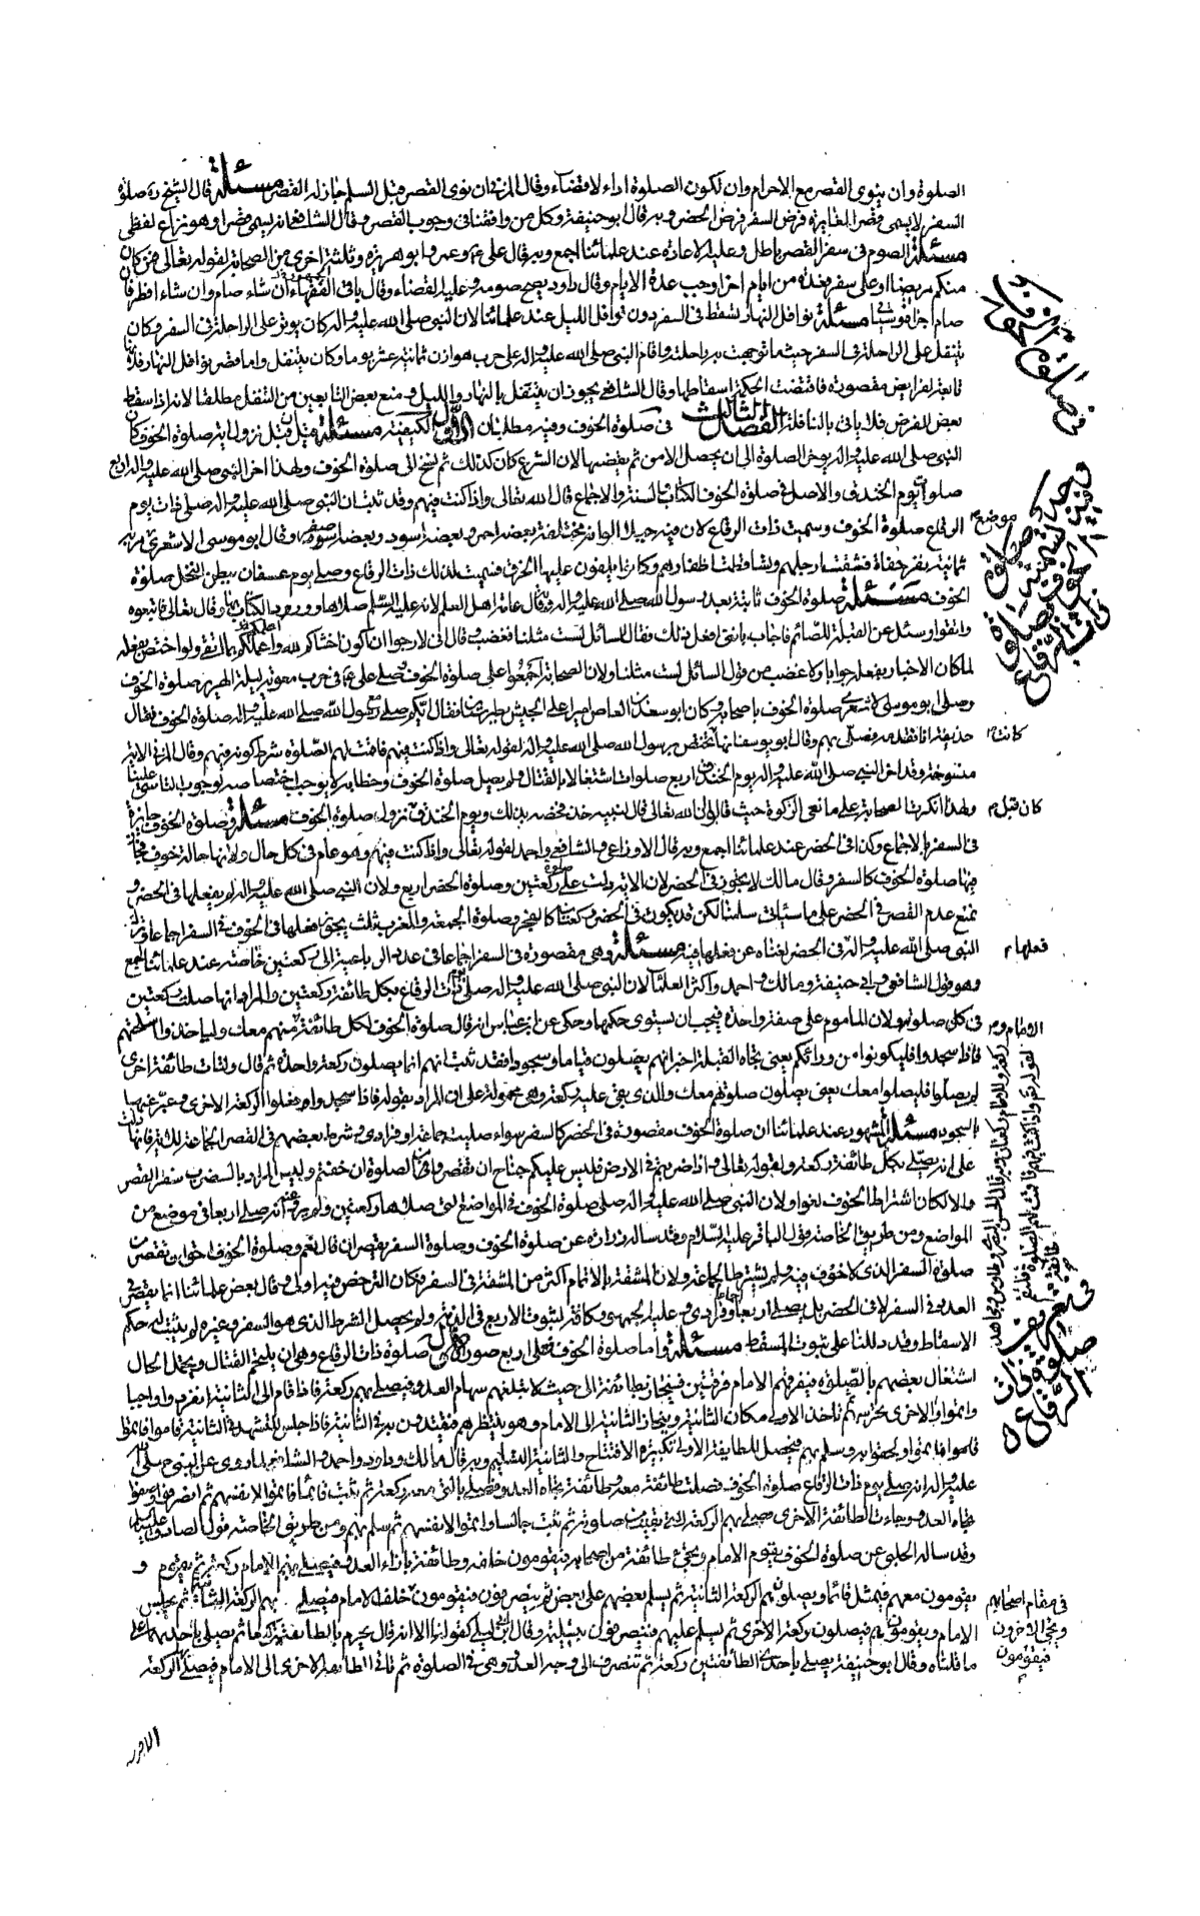 الصلوة وان ينوى القصر مع الاحرام وان تكون الصلوة اداء لا قضاء وقال المزنى ان نوى القصر قبل السلم جاز له القصر مسئلة قال الشيخ ره صلوة
السفر لا يسمى قصرا لمغايرة فرض السفر فرض الحضر وبه قال ابو حنيفة وكل من وافقنا فى وجوب القصر وقال الشافعى انه يسمى قصرا وهو نزاع لفظى
مسئلة الصوم فى سفر القصر باطل وعليه الاعادة عند علمائنا اجمع وبه قال على ع وعمر وابو هريرة وثلثة اخرى من الصحابة لقوله تعالى فمن كان
منكم مريضا او على سفر فعدة من ايام اخر اوجب عدة الايام وقال داود يصح صومه وعليه القضاء وقال باقى الفقهاء ان شاء صام وان شاء افطر فان
صام اجزاه مسئلة نوافل النهار تسقط فى السفر دون نوافل الليل عند علمائنا لان النبى صلى الله عليه واله كان يوتر على الراحلة فى السفر وكان
يتنفل على الراحلة فى السفر حيث ما توجهت به راحلته واقام النبى صلى الله عليه واله على حرب هوازن ثمانية عشر يوما وكان يتنفل واما قصر نوافل النهار فلانها
تابعة لفرايض مقصورة فاقتضت الحكمة اسقاطها وقال الشافعى يجوز ان يتنفل بالنهار والليل ومنع بعض التابعين من التنفل مطلقا لانه اذا سقط
بعض الفرض فلا ياتى بالنافلة الفصل الثالث فى صلوة الخوف وفيه مطلبان الاول الكيفية مسئلة قبل نزول اية صلوة الخوف كان
النبى صلى الله عليه واله يوخر الصلوة الى ان يحصل الامن ثم يقضيها لان الشرع كان كذلك ثم نسخ الى صلوة الخوف ولهذا اخر النبى صلى الله عليه واله اربع
صلوات يوم الخندق والاصل فى صلوة الخوف الكتاب والسنة والاجماع قال الله تعالى واذا كنت فيهم وقد ثبت ان النبى صلى الله عليه واله صلى ذات يوم
الرقاع صلوة الخوف وسميت ذات الرقاع لان فيه جبلا الوانه مختلفة بعضه احمر وبعضه اسود وبعضه اصفر وقال ابو موسى الاشعرى مر به
ثمانية نفر حفاة فنقبت ارجلهم وتساقطت اظفارهم وكانوا يلفون عليها الخرق فسميت لذلك ذات الرقاع وصلى يوم عسفان ببطن النخل صلوة
الخوف مسئلة صلوة الخوف ثابتة بعد رسول الله صلى الله عليه واله قال عامة اهل العلم لانه عليه السلم صلاها وورود الكتاب بها وقال تعالى فاتبعوه
واتقوا وسئل عن القبلة للصائم فاجاب باننى افعل ذلك فقال السائل لست مثلنا فغضب قال انى لارجوا ان اكون اخشاكم لله واعلمكم بما اتقى ولو اختص بفعله
لما كان الاخبار بفعله جوابا ولا غضب من قول السائل لست مثلنا ولان الصحابة اجمعوا على صلوة الخوف صلى على ع فى حرب معوية ليلة الهرير صلوة الخوف
وصلى ابو موسى الاشعرى صلوة الخوف باصحابه وكان ابو سعيد بن العاص اميرا على الجيش بطبرستان فقال ايكم صلى مع رسول الله صلى الله عليه واله صلوة الخوف فقال
حذيفة انا فقدمه فصلى بهم وقال ابو يوسف انها تختص برسول الله صلى الله عليه واله لقوله تعالى واذا كنت فيهم فاقمت لهم الصلوة شرط كونه فيهم وقال المزنى الاية
منسوخة وقد اخر النبى صلى الله عليه واله يوم الخندق اربع صلوات اشتغالا بالقتال ولم يصل صلوة الخوف وخطابه لا يوجب اختصاصه لوجوب التاسى علينا
ولهذا انكرت الصحابة على مانعى الزكوة حيث قالوا ان الله تعالى قال لنبيه خذ فخصه بذلك ويوم الخندق نزول صلوة الخوف مسئلة وصلوة الخوف جايزة
فى السفر بالاجماع وكذا فى الحضر عند علمائنا اجمع وبه قال الاوزاعى والشافعى واحمد لقوله تعالى واذا كنت فيهم وهو عام فى كل حال ولانها حالة خوف فجاز
فيها صلوة الخوف كالسفر وقال مالك لا يجوز فى الحضر لان الاية دلت على ركعتين وصلوة الحضر اربع ولان النبى صلى الله عليه واله لم يفعلها فى الحضر و
نمنع عدم القصر فى الحضر على ما سياتى سلمنا لكن قد يكون فى الحضر ركعتان كالفجر وصلوة الجمعة والمغرب ثلث يجوز فعلها فى الخوف فى السفر اجماعا وترك
النبى صلى الله عليه واله فى الحضر لغناه عن فعلها فيه مسئلة وهى مقصورة فى السفر اجماعا فى عدد الرباعية الى ركعتين خاصة عند علمائنا اجمع
وهو قول الشافعى وابى حنيفة ومالك واحمد واكثر العلماء لان النبى صلى الله عليه واله صلى ذات الرقاع بكل طائفة ركعتين والمراد انها صلت ركعتين
فى كلى صلوتيه ولان الماموم على صفة واحدة فيجب ان يستوى حكمها وحكى عن ابن عباس انه قال صلوة الخوف لكل طائفة منهم معك ولياخذوا اسلحتهم
فاذا سجدوا فليكونوا من ورائكم يعنى تجاه القبلة اخبر انهم يصلون قياما وسجودا فقد ثبت انهم انما يصلون ركعة واحدة ثم قال ولتات طائفة اخرى
لم يصلوا فليصلوا معك يعنى يصلون صلوتهم معك والذى بقى عليه ركعة وهى محمولة على ان المراد بقوله فاذا سجدوا فعلوا الركعة الاخرى وعبر عنها
بالسجود مسئلة المشهور عند علمائنا ان صلوة الخوف مقصورة فى الحضر كالسفر سواء صليت جماعة او فرادى وشرط بعضهم فى القصر الجماعة لذلك فانها
على انه يصلى بكل طائفة ركعة ولقوله تعالى واذا ضربتم فى الارض فليس عليكم جناح ان تقصروا من الصلوة ان خفتم وليس المراد بالضرب سفر القصر
والا لكان اشتراط الخوف لغوا ولان النبى صلى الله عليه واله صلى صلوة الخوف فى المواضع التى صلاها ركعتين ولم يرو عنه انه صلى اربعا فى موضع من
المواضع ومن طريق الخاصة قول الباقر عليه السلام وقد ساله زرارة عن صلوة الخوف وصلوة السفر يقصران قال نعم وصلوة الخوف احق ان تقصر من
صلوة السفر الذى لا خوف فيه ولم يشترط الجماعة ولان المشقة بالاتمام اكثر من المشقة فى السفر فكان الترخص فيه اولى وقال بعض علمائنا انما يقصر فى
العدد فى السفر لا فى الحضر بل يصلى اربعا جماعة وفرادى وعليه الجمهور كافة لثبوت الاربع فى الذمة ولم يحصل الشرط الذى هو السفر وغيره لم يثبت له حكم
الاسقاط وقد دللنا على ثبوت المسقط مسئلة واما صلوة الخوف فعلى اربع صور الاول صلوة ذات الرقاع وهى ان يلتحم القتال ويحتمل الحال
اشتغال بعضهم بالصلوة فيفرقهم الامام فرقتين فينحاز بطائفة الى حيث لا تبلغهم سهام العدو فيصلى بهم ركعة فاذا قام الى الثانية انفردوا واجبا
واتموا والاخرى تحرسهم ثم تاخذ الاولى مكان الثانية وينحاز الثانية الى الامام وهو ينتظرهم فيقتدون به فى الثانية فاذا جلس للتشهد الثانية قاموا فاتموا
ولحقوا به وسلم بهم فيحصل للطايفة الاولى تكبيرة الافتتاح والثانية التسليم وبه قال مالك وداود واحمد والشافعى لما روى عن النبى صلى الله
عليه واله انه صلى يوم ذات الرقاع صلوة الخوف فصلت طائفة معه وطائفة تجاه العدو فصلى بالتى معه ركعة ثم ثبت قائما فاتموا لانفسهم ثم انصرفوا وصفوا
تجاه العدو وجاءت الطائفة الاخرى فصلى بهم الركعة التى بقيت من صلوته ثم ثبت جالسا واتموا لانفسهم ثم سلم بهم ومن طريق الخاصة قول الصادق عليه السلم
وقد ساله الحلبى عن صلوة الخوف يقوم الامام ويجئ طائفة من اصحابه فيقومون خلفه وطائفة بازاء العدو فيصلى بهم الامام ركعة ثم يقوم و
يقومون معه فيمثل قائما ويصلون هم الركعة الثانية ثم يسلم بعضهم على بعض ثم ينصرفون فيقومون خلف الامام فيصلى بهم الركعة الثانية ثم يجلس
الامام ويقومون هم فيصلون ركعة الاخرى ثم يسلم عليهم فينصرفون بتسليمه وقال ابن ابى ليلى كقولنا الا انه قال يحرم بالطائفتين كلها ثم يصلى باحديهما على
ما قلناه وقال ابو حنيفة يصلى باحدى الطائفتين ركعة ثم تنصرف الى وجه العدو وهى فى الصلوة ثم تاتى الطائفة الاخرى الى الامام فيصلى الركعة
موضع
كانت
كان قبل
فعلها
الامام و
ركعة وللامام ركعتان وبه قال الحسن البصرى وطاوس ومجاهد
لقوله تعالى واذا كنت فيهم فاقمت لهم الصلوة فلتقم طائفة
صلوة ذات الرقاع
فى مقام اصحابهم
ويجئ الاخرون
فيقومون